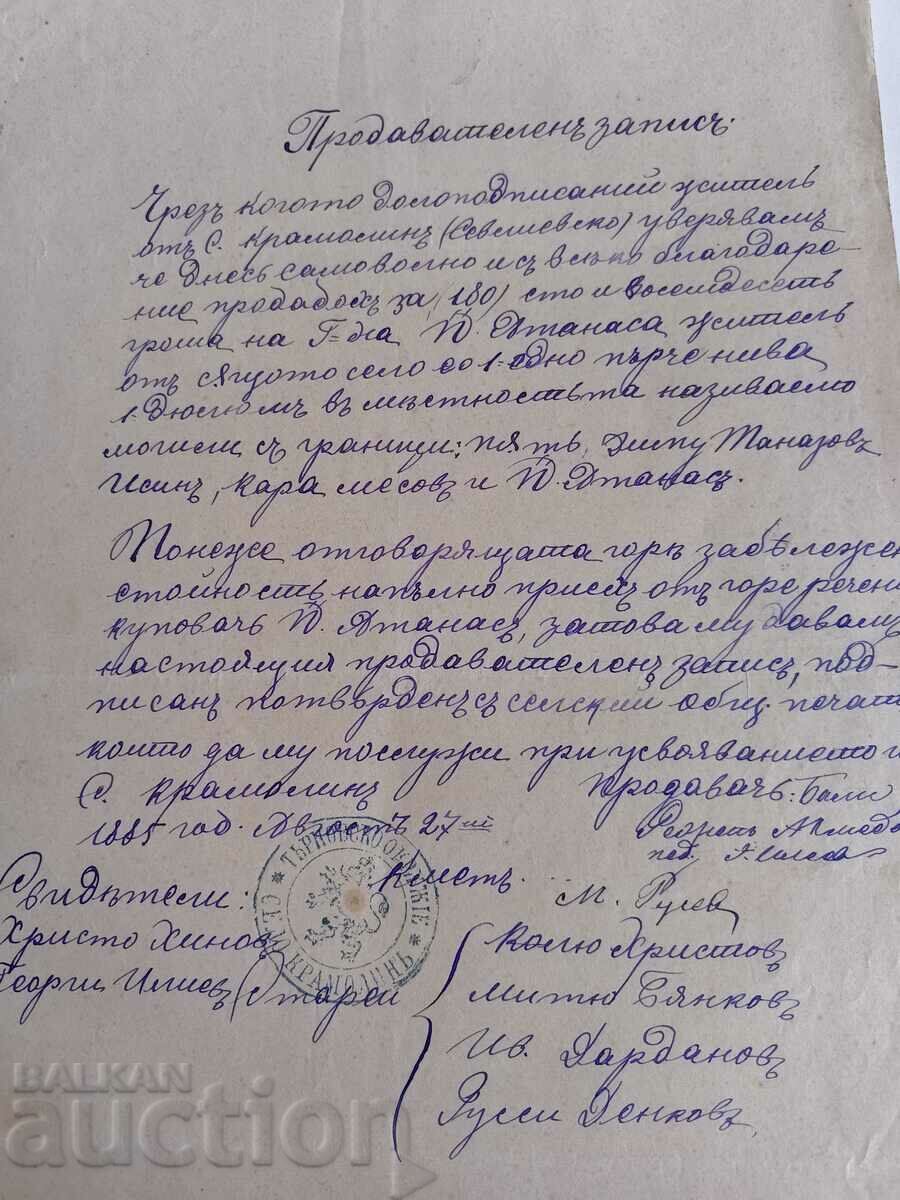 Продавателенъ записъ.
Чрезъ когото долоподписаний жителъ
отъ С. Крамолинъ (Севлиевско) уверявамъ
че днесь самоволно и съ всяко благодаре-
ние продадохъ за (180) сто и восемдесетъ
гроша на Г-дна П. Атанаса жителъ
отъ сѫщото село со 1. едно пърче нива
1. дюлюмъ въ мѣстностьта називаемо
могили съ граници: пять, Диму Таназовъ
Исинъ, Кара месовъ и П. Атанасъ.
Понеже отговорящата горѣ забѣлежен
стойность напълно приехъ отъ горе речени
куповачъ П. Атанасъ, затова му давамъ
настоящия продавателенъ записъ, под-
писанъ потвърденъ съ селский общ. печат
който да му послужи при усвояванието
С. Крамолинъ
Продавачъ: Бали
1885 год. Августъ 27-ий
под.
Кметъ.
М. Русев
Свидѣтели:
Христо Хиновъ
Георги Илиев
Старей
Колю Христовъ
Митю Бянковъ
Ив. Дарданов
Русси Денковъ
ТЪРНОВСКО ОКРѪЖІЕ * СЕЛО КРАМОЛИНЪ *
BALKAN
auction